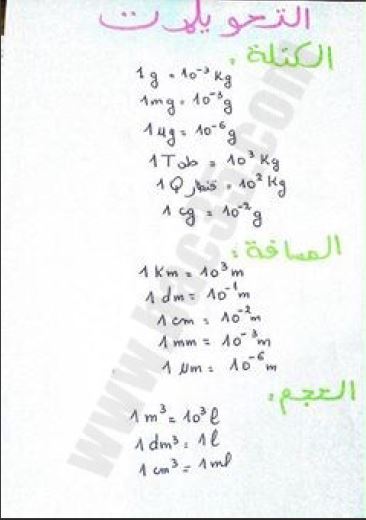 التحويلات
الكتلة :
1g = 10⁻³ Kg
1mg = 10⁻³g
1µg = 10⁻⁶g
1T طن = 10³ Kg
1Q قنطار = 10² Kg
1 cg = 10⁻² g
المسافة :
1 Km = 10³ m
1 dm = 10⁻¹ m
1 cm = 10⁻² m
1 mm = 10⁻³ m
1 µm = 10⁻⁶ m
الحجم :
1 m³ = 10³ l
1 dm³ = 1 l
1 cm³ = 1 ml